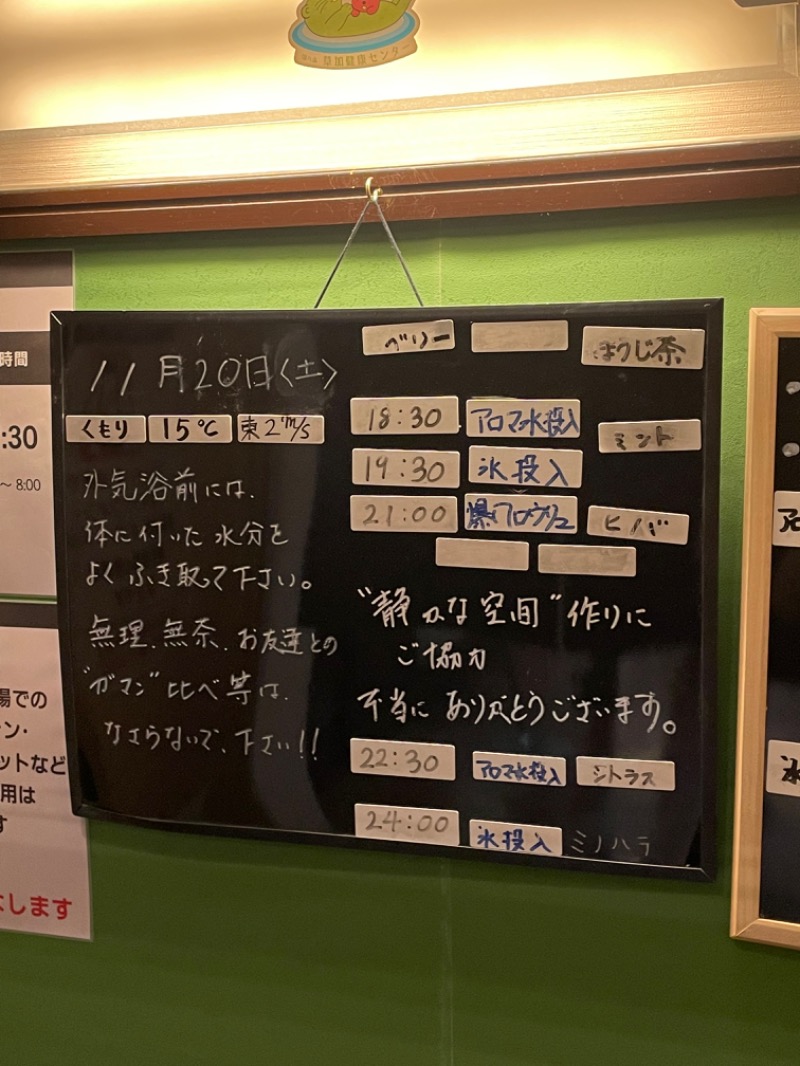 草加健康センター
時間
:30
～8:00
11月20日〈土〉
くもり 15℃ 東2m/s
外気浴前には、
体に付いた水分を
よくふき取って下さい。
無理、無茶、お友達との
"ガマン"比べ等は、
なさらないで、下さい!!
ベリー
ほうじ茶
18:30 アロマ水投入
ミント
19:30 氷投入
21:00 爆アロウリュ ヒバ
"静かな空間"作りに
ご協力
本当にありがとうございます。
22:30 アロマ水投入 シトラス
24:00 氷投入 ミノハラ
場での
ン・
ットなど
用は
す
します
アロ
氷